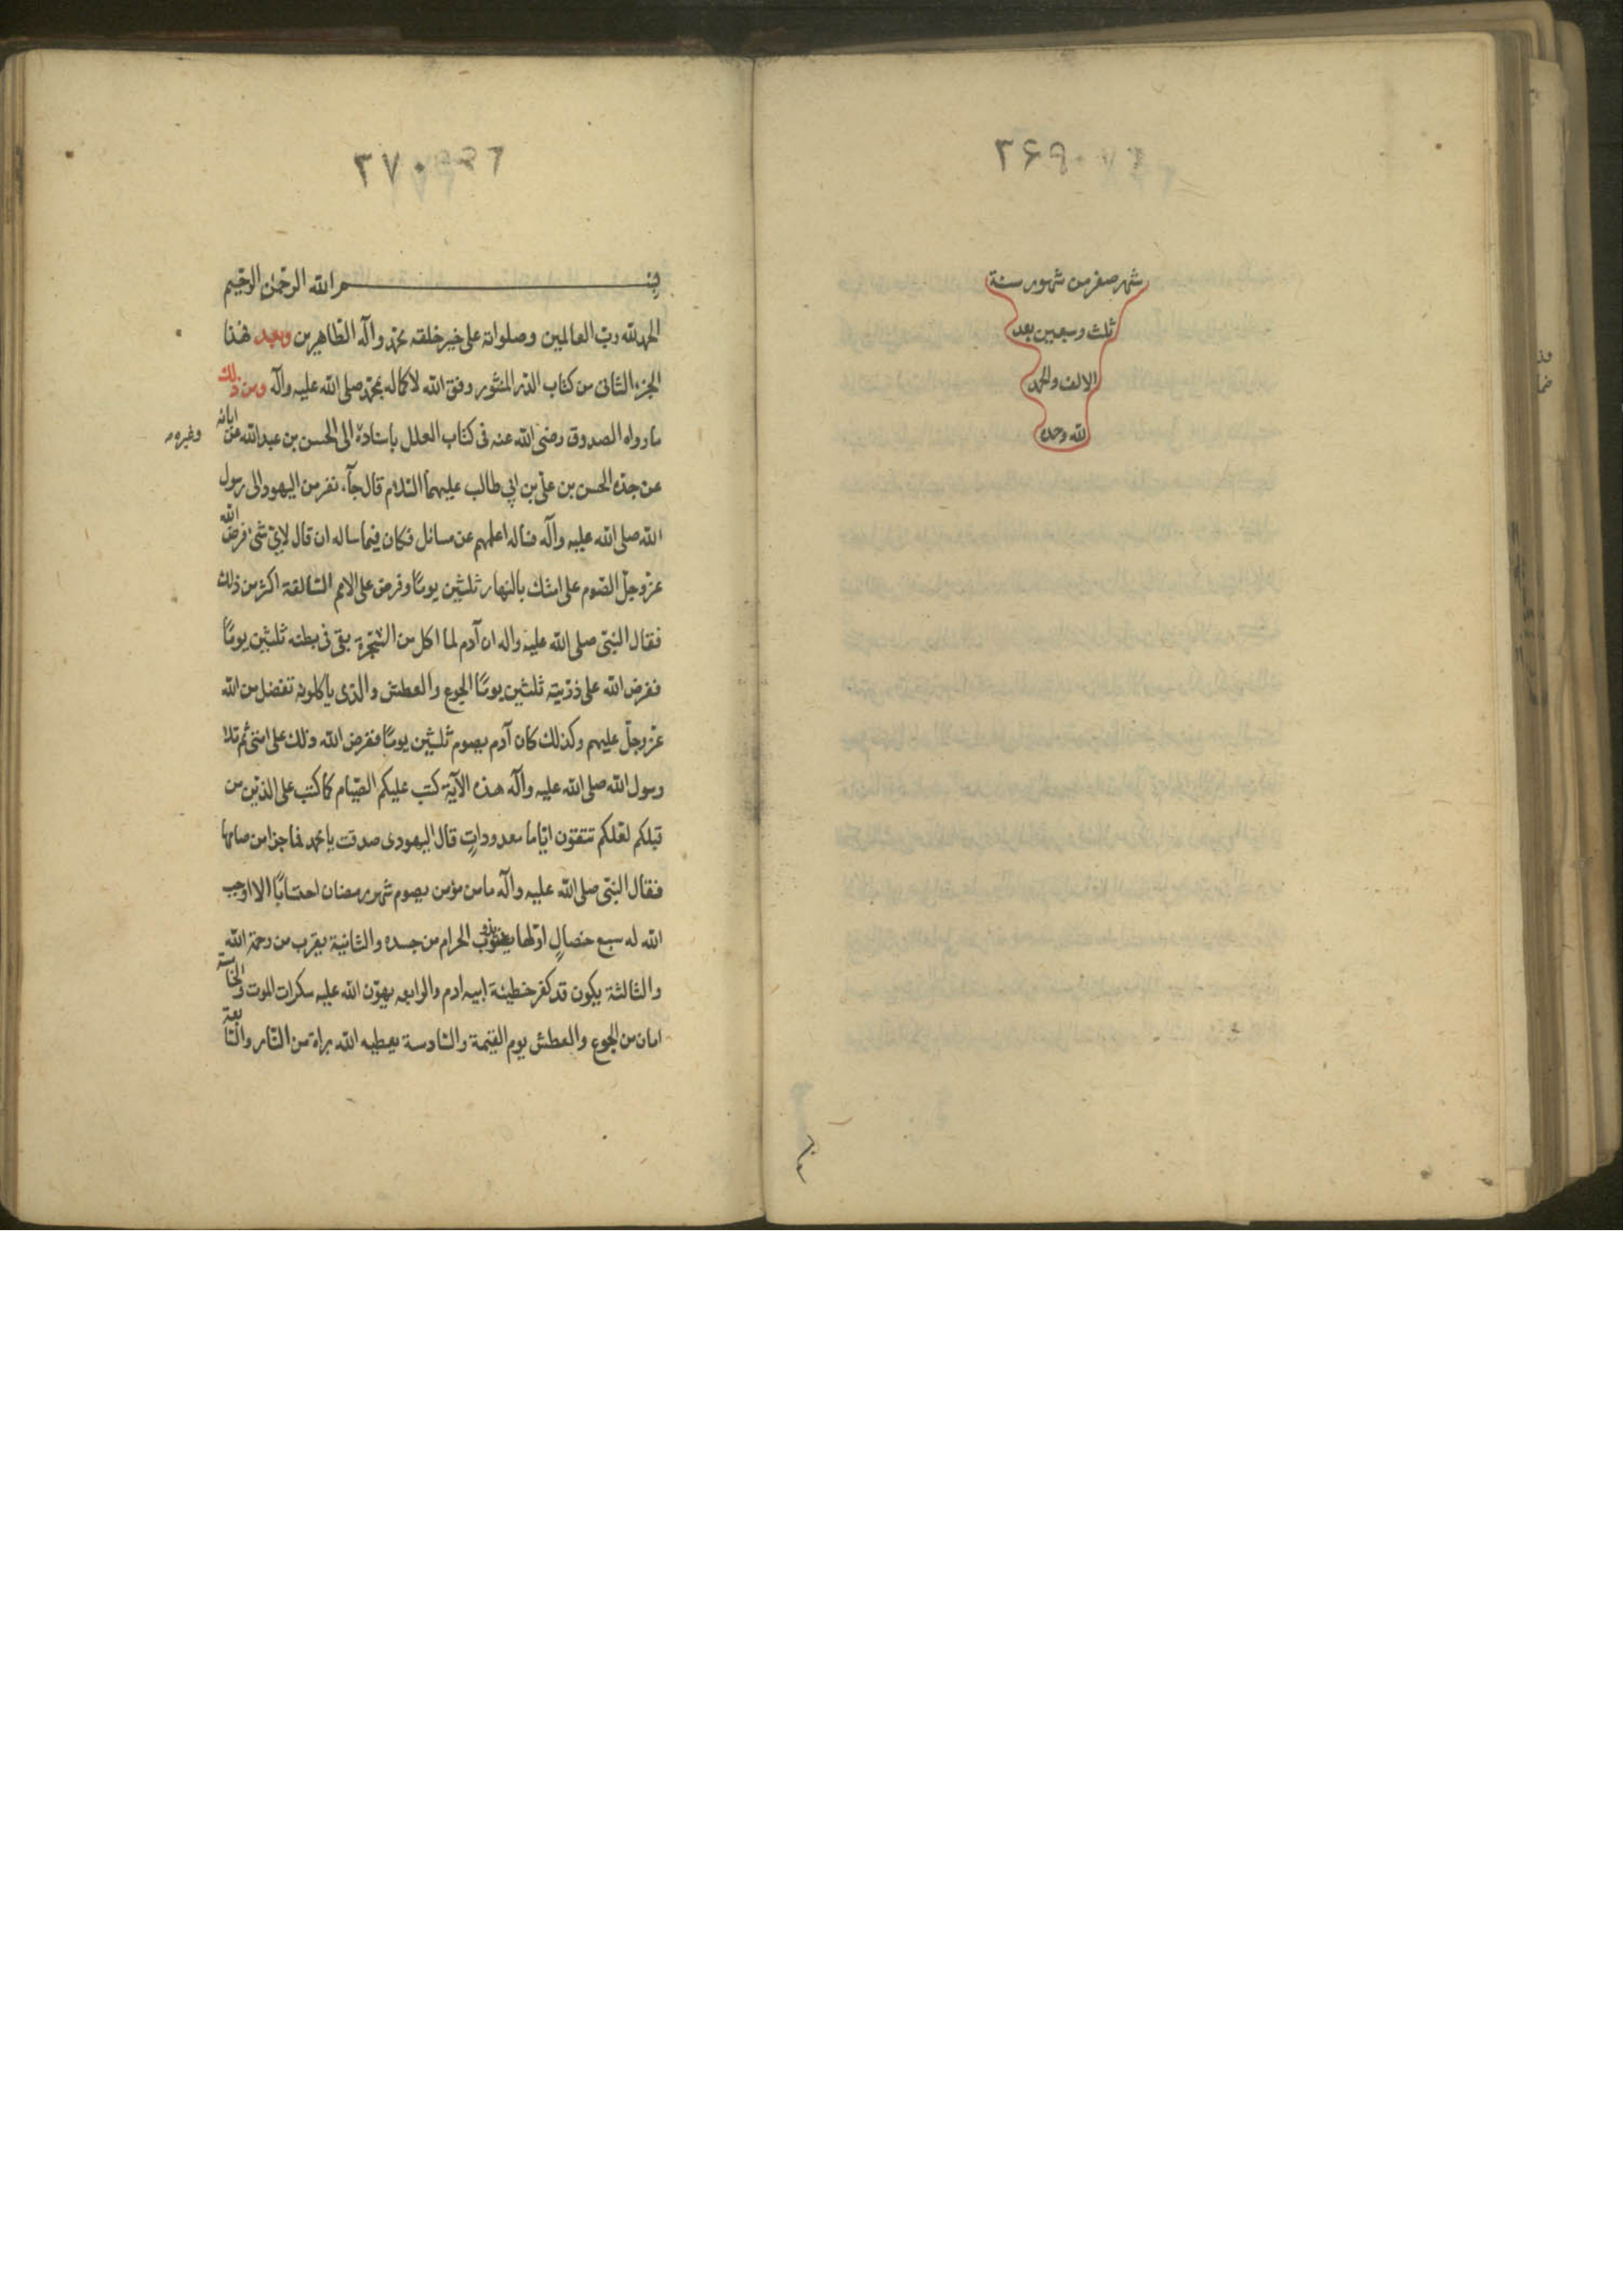 ۲۶۹
شهر صفر من شهور سنة
ثلث وسبعين بعد
الالف والحمد
لله وحده
۲۷۰
بسم الله الرحمن الرحيم
الحمد لله رب العالمين وصلواته على خير خلقه محمد وآله الطاهرين وبعد فهذا
الجزء الثانى من كتاب الدر المنثور وفق الله لاكماله بمحمد صلى الله عليه وآله ومن ذلك
ما رواه الصدوق رضى الله عنه فى كتاب العلل باسناده الى الحسن بن عبدالله عن ابائه
وغيره
عن جده الحسن بن على بن ابي طالب عليهما السلام قال جآء نفر من اليهود الى رسول
الله صلى الله عليه وآله فساله اعلمهم عن مسائل فكان فيما ساله ان قال لاى شئ فرض الله
عز وجل الصوم على امتك بالنهار ثلثين يومًا وفرض على الامم السالفة اكثر من ذلك
فقال النبى صلى الله عليه واله ان آدم لما اكل من الشجرة بقى فى بطنه ثلثين يومًا
ففرض الله على ذريته ثلثين يومًا الجوع والعطش والذى ياكلونه تفضل من الله
عز وجل عليهم وكذلك كان آدم يصوم ثلثين يومًا ففرض الله ذلك على امتى ثم تلا
رسول الله صلى الله عليه وآله هذه الآية كتب عليكم الصيام كما كتب على الذين من
قبلكم لعلكم تتقون اياما معدودات قال اليهودى صدقت يا محمد فما جزا من صامها
فقال النبى صلى الله عليه وآله ما من مؤمن يصوم شهر رمضان احتسابًا الا اوجب
الله له سبع خصال اولها يذوب الحرام من جسده والثانية يقرب من رحمة الله
والثالثة يكون قد كفر خطيئة ابيه ادم والرابعه يهون الله عليه سكرات الموت والخامسة
امان من الجوع والعطش يوم القيمة والسادسة يعطيه الله براة من النار والسابعة